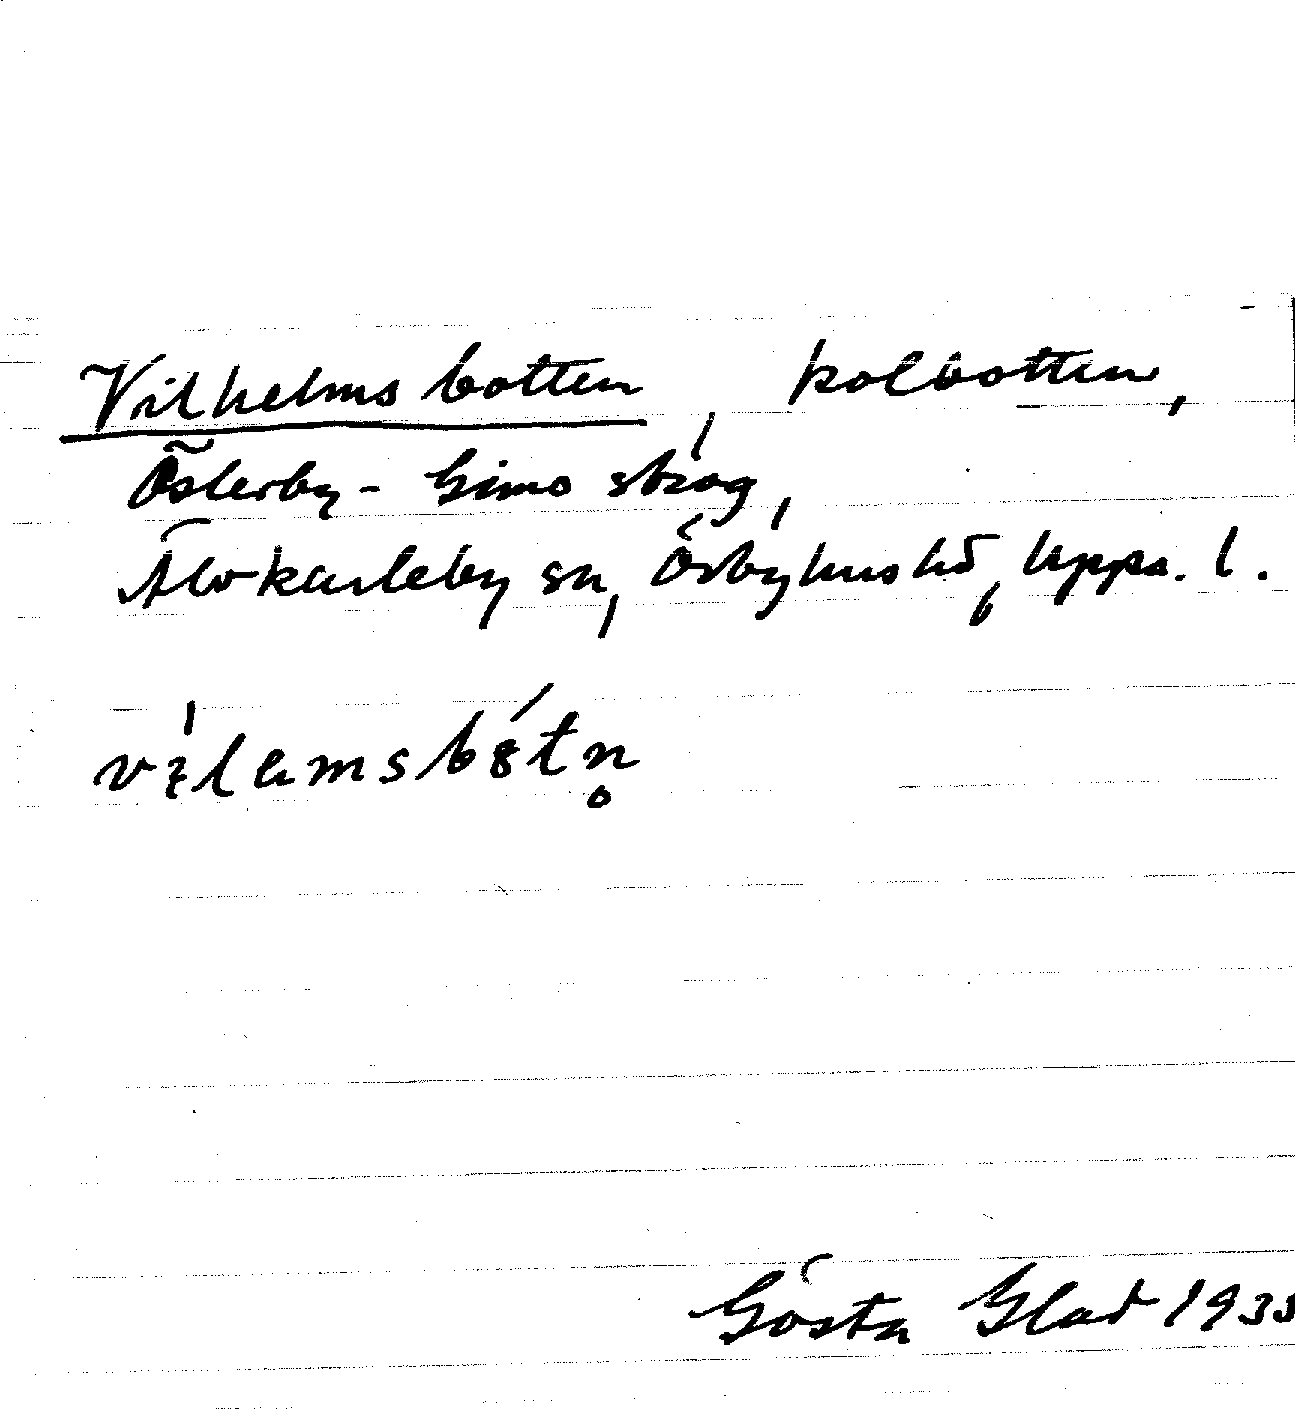 Vilhelmsbotten, kolbotten,
Österby-Gimo skog,
Älvkarleby sn, Örbyhus hd, Upps. l.
Gösta Glad 1933